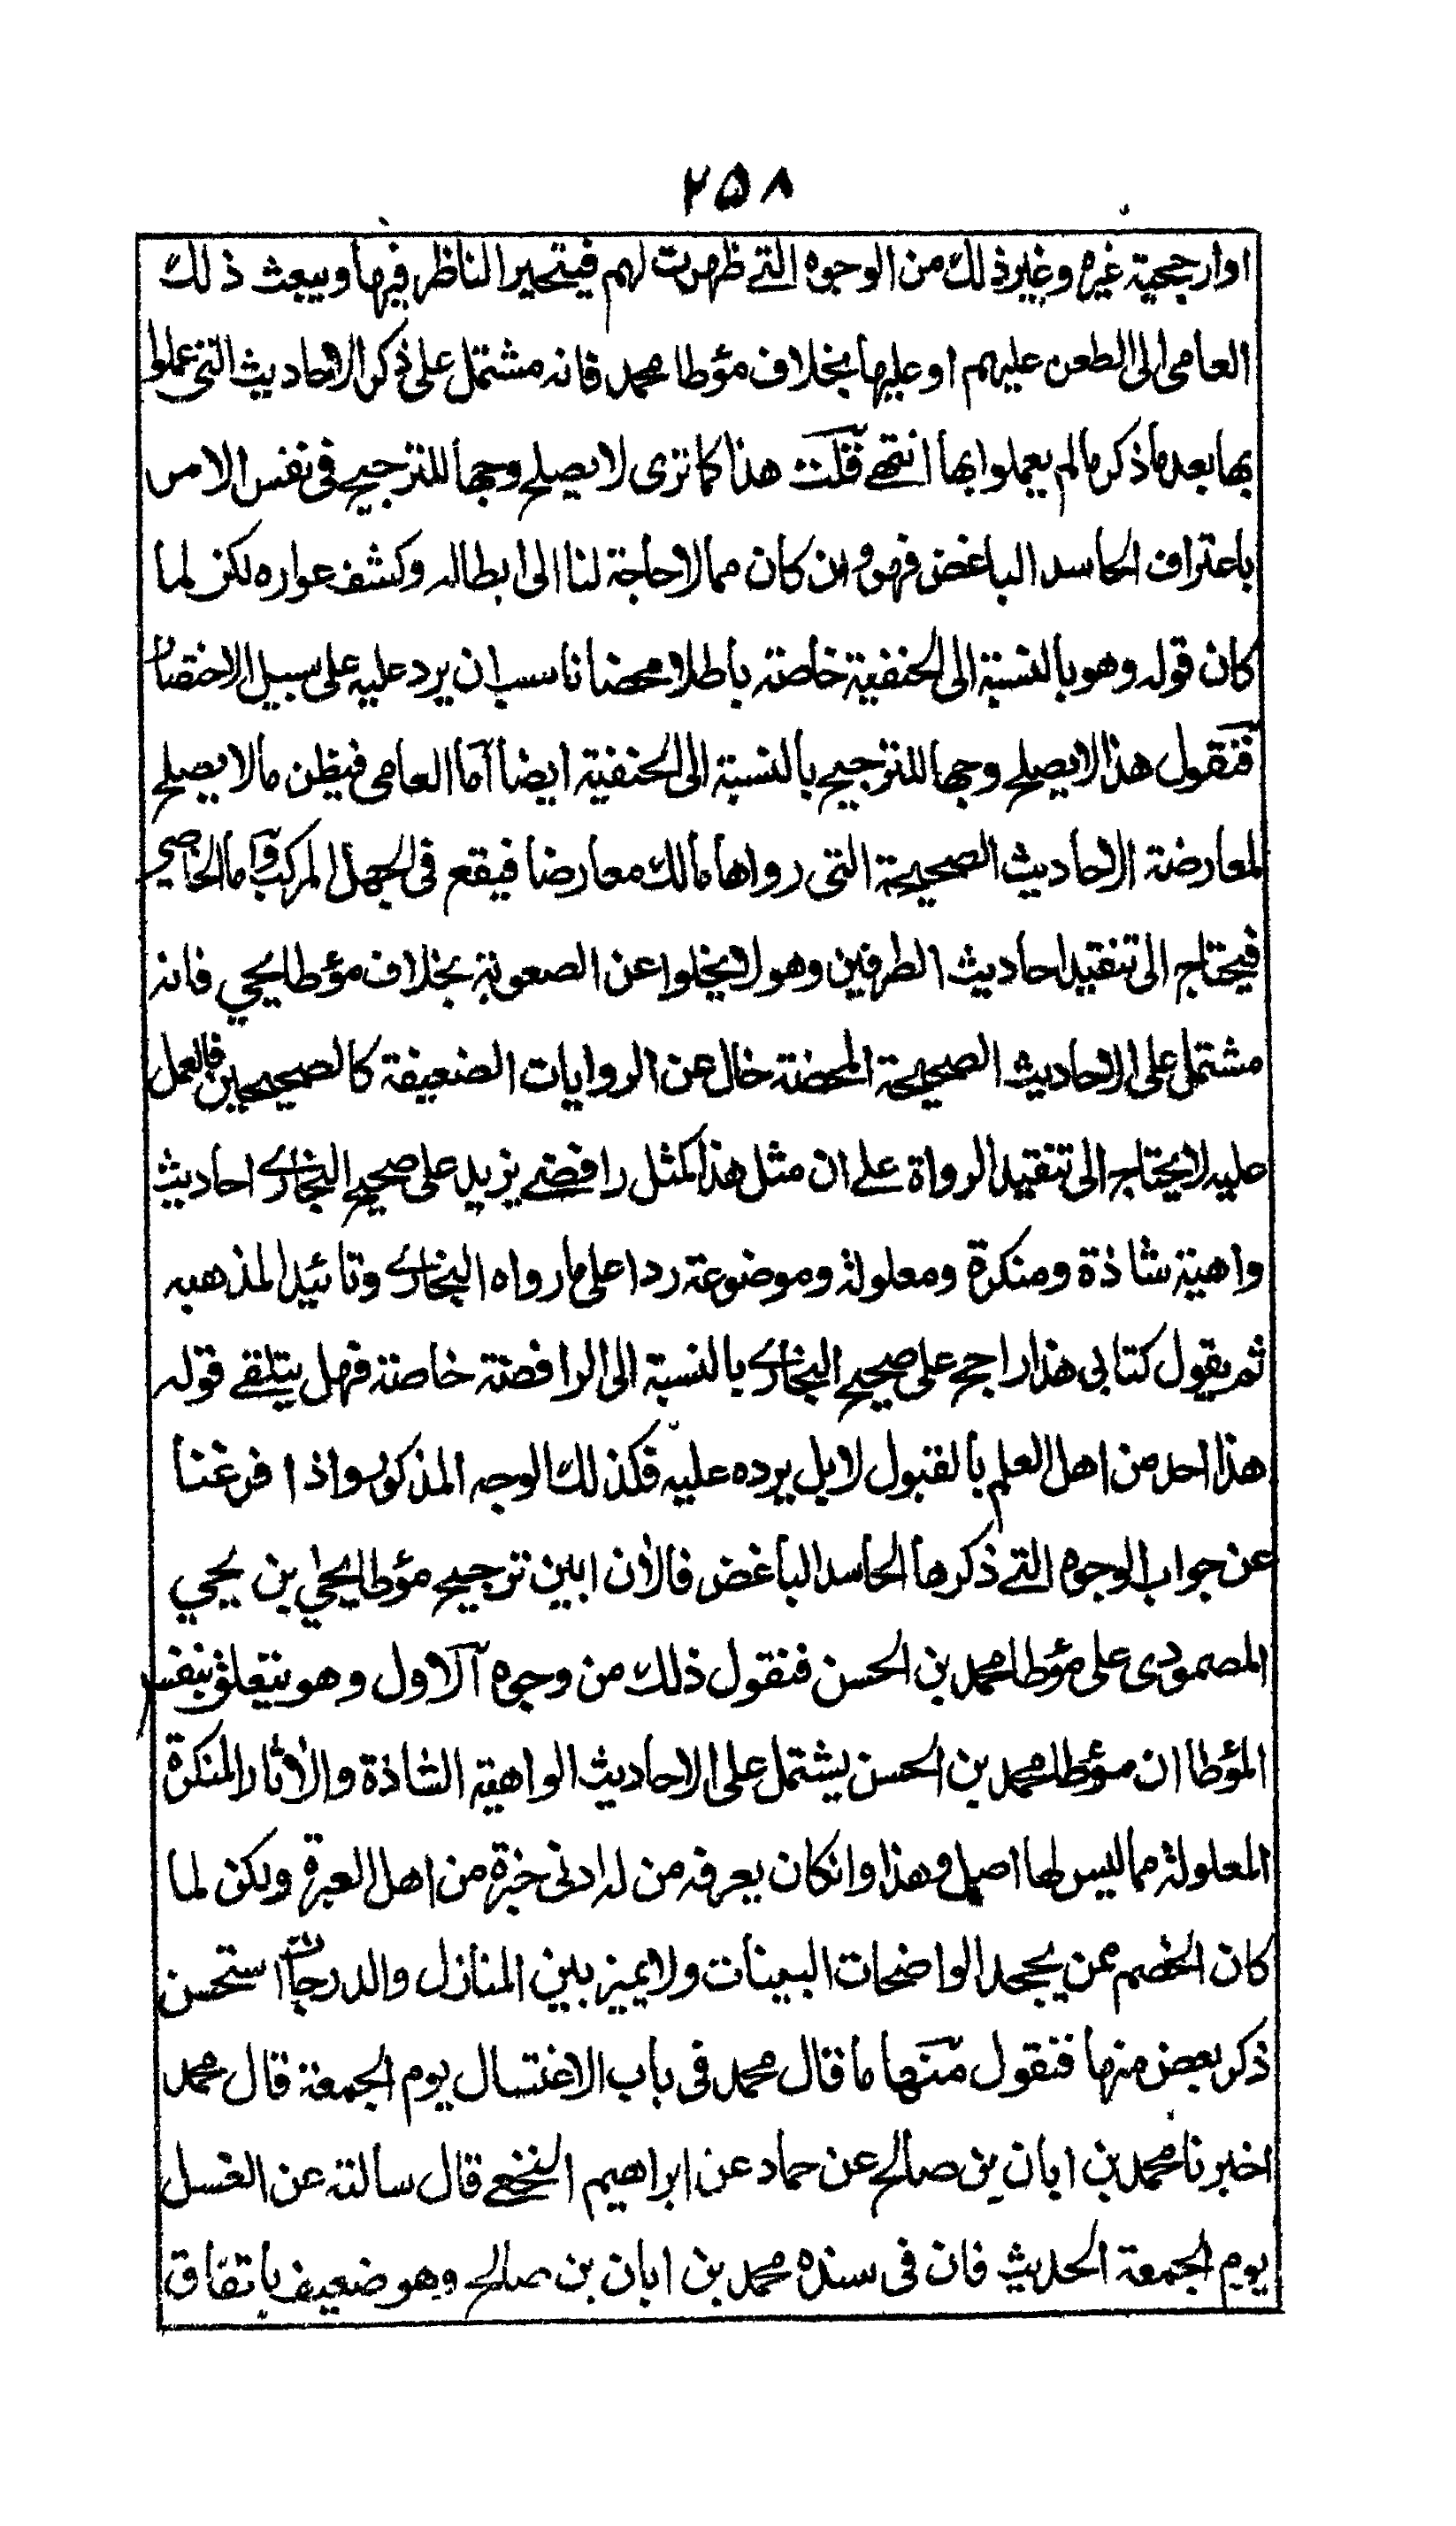 ٢٥٨
اوارجحية غيره وغير ذلك من الوجوه التے ظهرت لهم فيتحير الناظر فيها ويبعث ذلك
العامى الى الطعن عليهم او عليها بخلاف مؤطا محمد فانه مشتمل على ذكر الاحاديث التى عملوا
بها بعد ما ذكر ما لم يعملوا بها انتهے قلت هذا كما ترى لا يصلح وجها للترجيح فى نفس الامر
باعتراف الحاسد الباغض فهو وان كان مما لاحاجة لنا الى ابطاله وكشف عواره لكن لما
كان قوله وهو بالنسبة الى الحنفية خاصة باطلا محضا ناسب ان يرد عليه على سبيل الاختصار
فنقول هذا لا يصلح وجها للترجيح بالنسبة الى الحنفية ايضا اما العامى فيظن ما لا يصلح
لمعارضة الاحاديث الصحيحة التى رواها مالك معارضا فيقع فى الجهل المركب واما الخاصى
فيحتاج الى تنقيد احاديث الطرفين وهو لا يخلوا عن الصعوبة بخلاف مؤطا يحيي فانه
مشتمل على الاحاديث الصحيحة المحضة خال عن الروايات الضعيفة كالصحيحين فالعمل
عليه لا يحتاج الى تنقيد الرواة علے ان مثل هذا كمثل رافضے يزيد على صحيح البخارے احاديث
واهية شاذة ومنكرة ومعلولة وموضوعة ردا على ما رواه البخارے وتائيدا لمذهبه
ثم يقول كتابى هذا راجح على صحيح البخارے بالنسبة الى الرافضة خاصة فهل يتلقے قوله
هذا احد من اهل العلم بالقبول لا بل يرده عليه فكذلك الوجه المذكور واذا فرغنا
عن جواب الوجوه التے ذكرها الحاسد الباغض فالان ابين ترجيح مؤطا يحيٰي بن يحيي
المصمودى على مؤطا محمد بن الحسن فنقول ذلك من وجوه آلاول وهو يتعلق بنفس
المؤطا ان مؤطا محمد بن الحسن يشتمل على الاحاديث الواهية الشاذة والاثار المنكرة
المعلولة مما ليس لها اصل وهذا وانكان يعرفه من له ادنى خبرة من اهل العبرة ولكن لما
كان الخصم ممن يجحد الواضحات البينات ولا يميز بين المنازل والدرجات استحسن
ذكر بعض منها فنقول منها ما قال محمد فى باب الاغتسال يوم الجمعة قال محمد
اخبرنا محمد بن ابان بن صالح عن حماد عن ابراهيم النخعے قال سالته عن الغسل
يوم الجمعة الحديث فان فى سنده محمد بن ابان بن صالح وهو ضعيف باتفاق